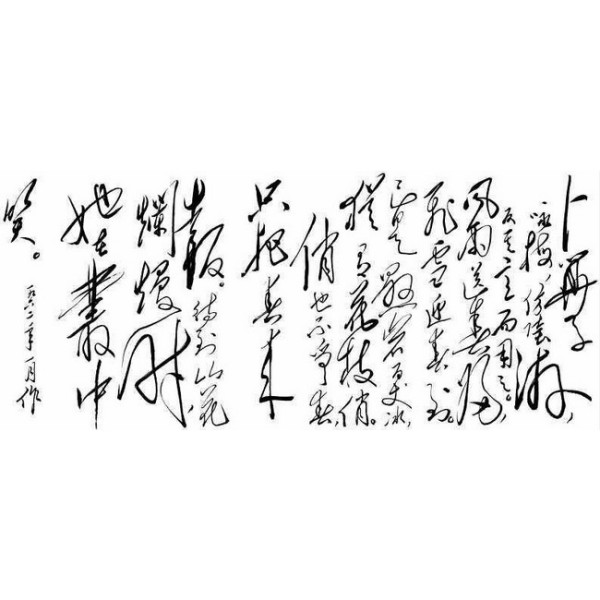 卜算子
咏梅，仿陆游，
反其意而用之。
风雨送春归，
飞雪迎春到。
已是悬岩百丈冰，
犹有花枝俏。
俏也不争春，
只把春来
报。待到山花
爛熳时
她在叢中
笑。
一九六二年一月作